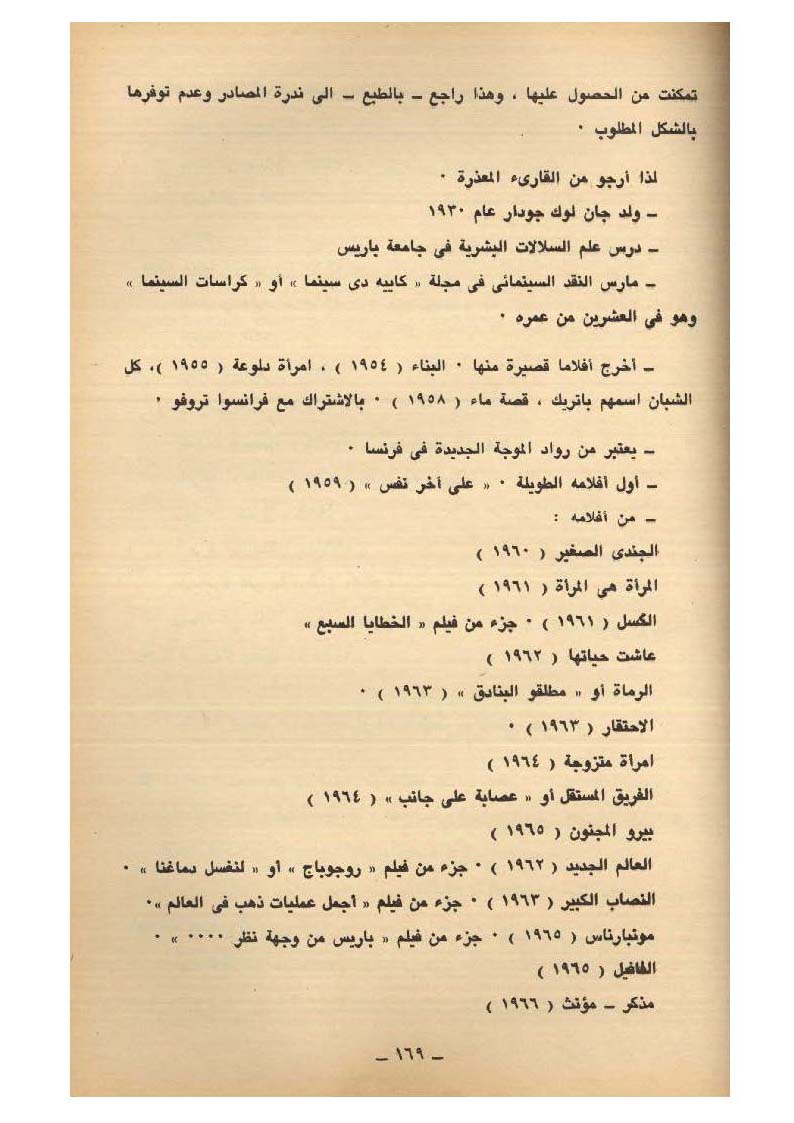 تمكنت من الحصول عليها ، وهذا راجع ـ بالطبع ـ الى ندرة المصادر وعدم توفرها
بالشكل المطلوب ٠
لذا أرجو من القارىء المعذرة ٠
ـ ولد جان لوك جودار عام ١٩٣٠
ـ درس علم السلالات البشرية فى جامعة باريس
ـ مارس النقد السينمائى فى مجلة « كاييه دى سينما » أو « كراسات السينما »
وهو فى العشرين من عمره ٠
ـ أخرج أفلاما قصيرة منها ٠ البناء ( ١٩٥٤ ) ، امرأة دلوعة ( ١٩٥٥ )، كل
الشبان اسمهم باتريك ، قصة ماء ( ١٩٥٨ ) ٠ بالاشتراك مع فرانسوا تروفو ٠
ـ يعتبر من رواد الموجة الجديدة فى فرنسا ٠
ـ أول أفلامه الطويلة ٠ « على آخر نفس » ( ١٩٥٩ )
ـ من أفلامه :
الجندى الصغير ( ١٩٦٠ )
المرأة هى المرأة ( ١٩٦١ )
الكسل ( ١٩٦١ ) ٠ جزء من فيلم « الخطايا السبع »
عاشت حياتها ( ١٩٦٢ )
الرماة أو « مطلقو البنادق » ( ١٩٦٣ ) ٠
الاحتقار ( ١٩٦٣ ) ٠
امرأة متزوجة ( ١٩٦٤ )
الفريق المستقل أو « عصابة على جانب » ( ١٩٦٤ )
بيرو المجنون ( ١٩٦٥ )
العالم الجديد ( ١٩٦٢ ) ٠ جزء من فيلم « روجوباج » أو « لنغسل دماغنا » ٠
النصاب الكبير ( ١٩٦٣ ) ٠ جزء من فيلم « أجمل عمليات ذهب فى العالم »٠
مونبارناس ( ١٩٦٥ ) ٠ جزء من فيلم « باريس من وجهة نظر ٠٠٠٠ » ٠
( ١٩٦٥ )
مذكر ـ مؤنث ( ١٩٦٦ )
ـ ١٦٩ ـ